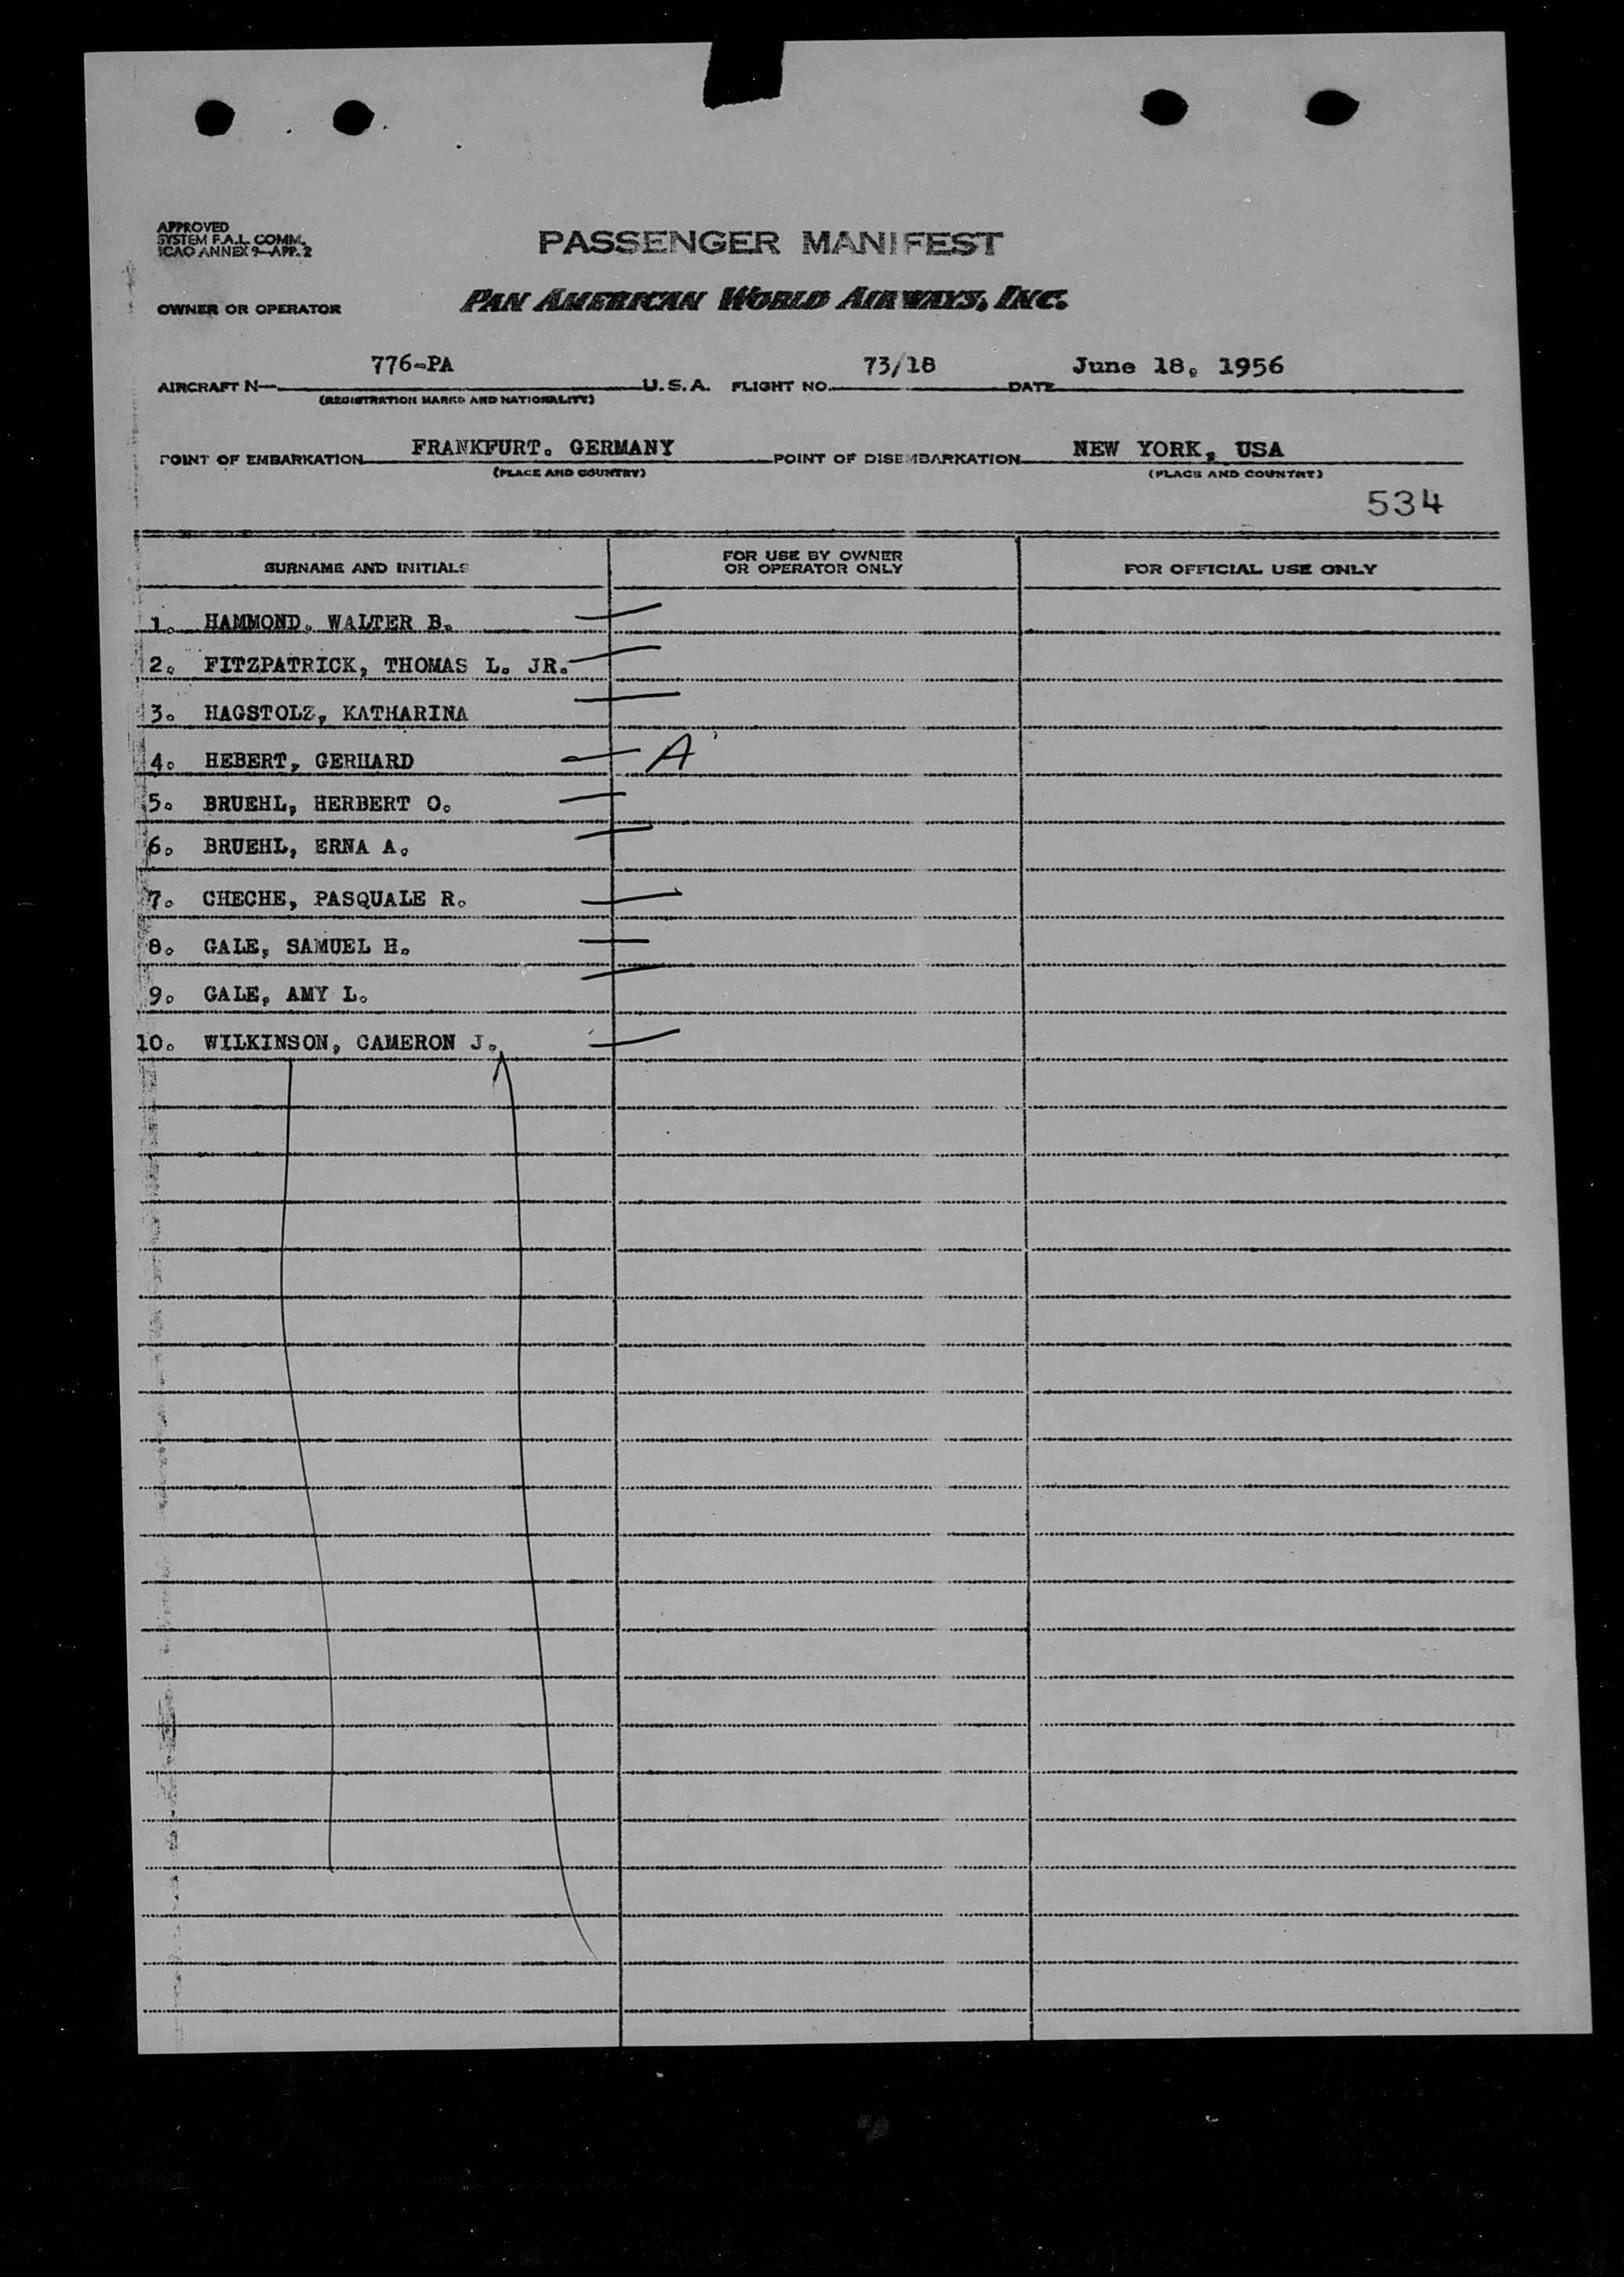 APPROVED
SYSTEM F.A.L. COMM.
ICAO ANNEX 9-APP. 2
PASSENGER MANIFEST
OWNER OR OPERATOR PAN AMERICAN WORLD AIRWAYS, INC.
776-PA 73/18 June 18, 1956
AIRCRAFT N— U.S.A. FLIGHT NO. DATE
(REGISTRATION MARKS AND NATIONALITY)
FRANKFURT. GERMANY NEW YORK, USA
POINT OF EMBARKATION POINT OF DISEMBARKATION
(PLACE AND COUNTRY) (PLACE AND COUNTRY)
534
SURNAME AND INITIALS FOR USE BY OWNER OR OPERATOR ONLY FOR OFFICIAL USE ONLY
1. HAMMOND. WALTER B.
2. FITZPATRICK, THOMAS L. JR.
3. HAGSTOLZ, KATHARINA
4. HEBERT, GERHARD A
5. BRUEHL, HERBERT O.
6. BRUEHL, ERNA A.
7. CHECHE, PASQUALE R.
8. GALE, SAMUEL H.
9. GALE, AMY L.
10. WILKINSON, CAMERON J.